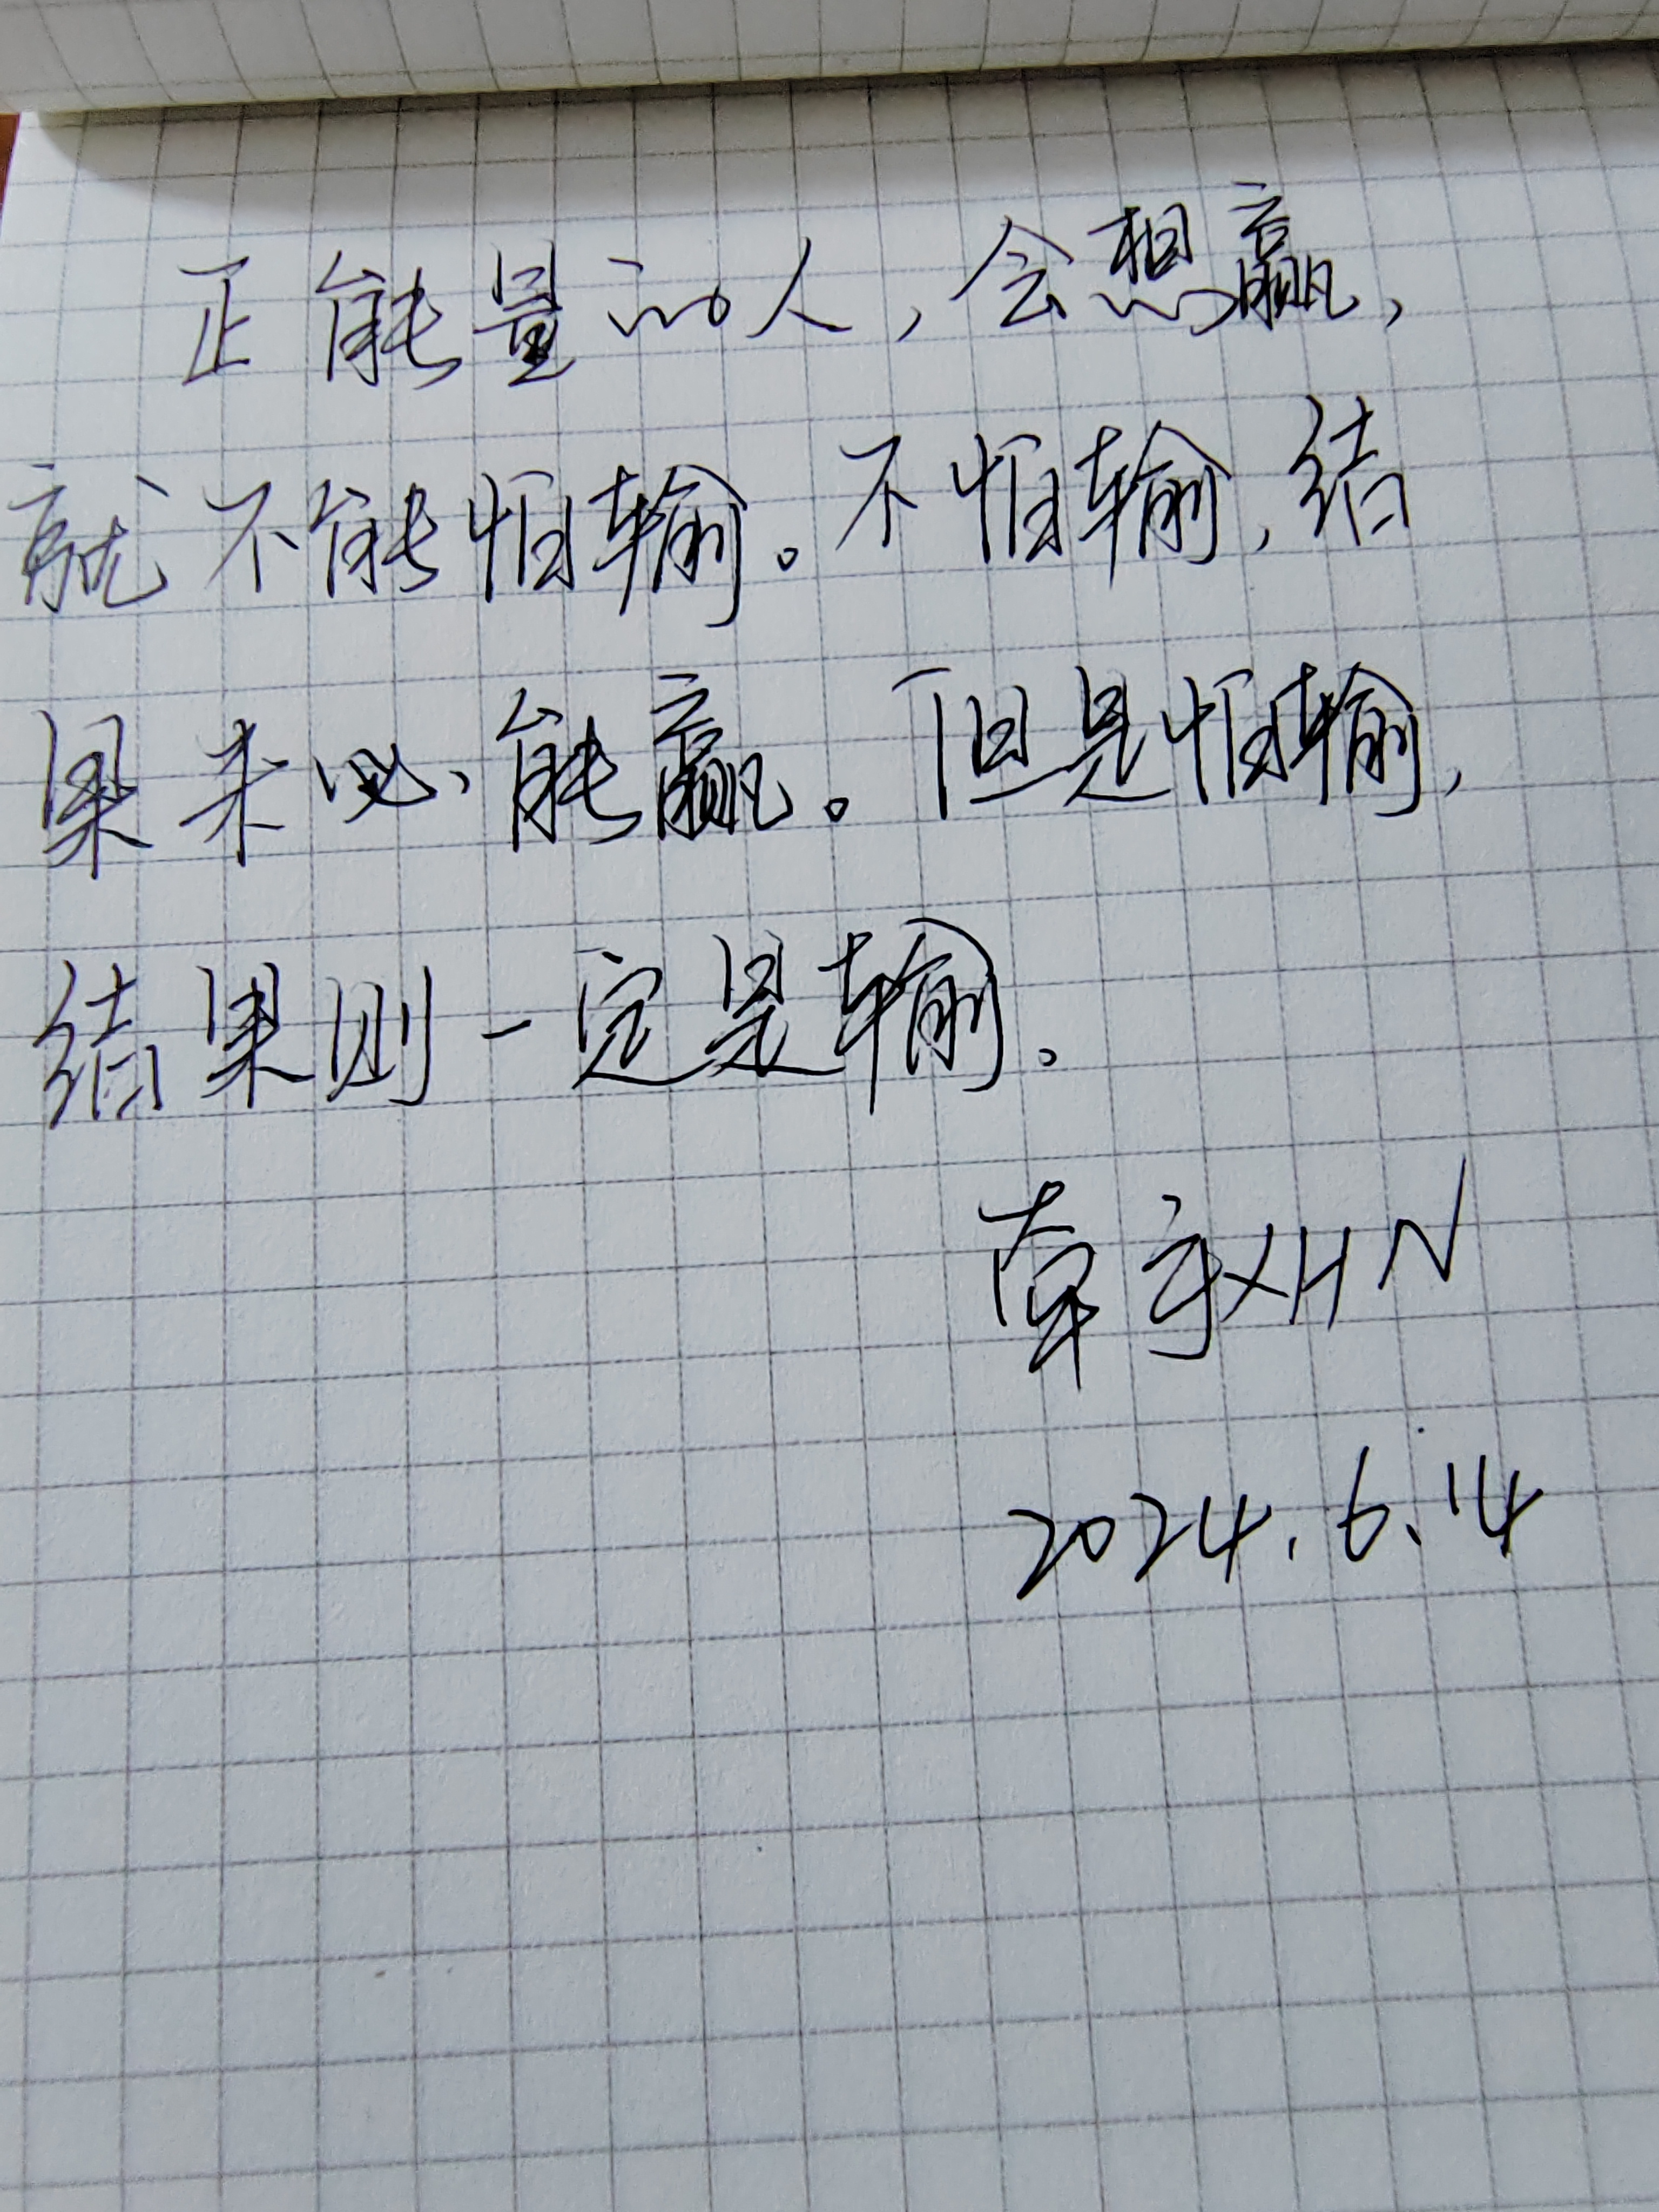 正能量的人,会想赢,
就不能怕输。不怕输,结
果未必能赢。但是怕输,
结果则一定是输。
XHN
2024.6.14